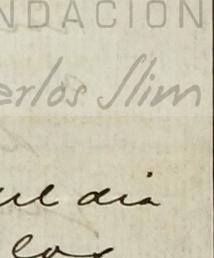 NDACIÓN
erlos Slim
el dia
los